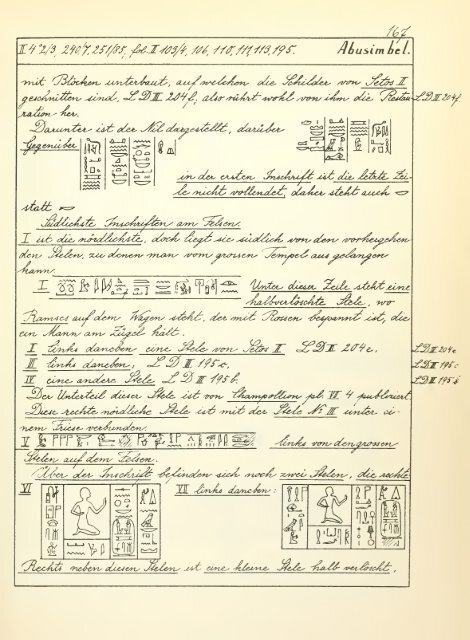 167
II 4° 2/3, 240/7, 251/85, fol. II 103/4, 106, 110, 111, 113, 195. Abusimbel.
mit Blöcken unterbaut, auf welchen die Schilder von Setos II
geschnitten sind, L D III 204 f, also rührt wohl von ihm die Restau- L D III 204 f.
ration her.
Darunter ist der Nil dargestellt, darüber
Gegenüber
in der ersten Inschrift ist die letzte Zei-
le nicht vollendet, daher steht auch
statt
Südlichste Inschriften am Felsen.
I ist die nördlichste, doch liegt sie südlich von den vorhergehen
den Stelen, zu denen man vom grossen Tempel aus gelangen
kann.
I Unter dieser Zeile steht eine
halbverlöschte Stele, wo
Ramses auf dem Wagen steht, der mit Rossen bespannt ist, die
ein Mann am Zügel hält.
II links daneben eine Stele von Setos II L D III 204 e. L D III 204 e.
III links daneben, L D III 195 c. L D III 195 c
IV eine andere Stele L D III 195 b. L D III 195 b
Der Unterteil dieser Stele ist von Champollion pl. VI 4 publiciert.
Diese rechte nördliche Stele ist mit der Stele No III unter ei-
nem Friese verbunden.
V links von den grossen
Stelen auf dem Felsen.
Über der Inschrift befinden sich noch zwei Stelen, die rechte
VI VII links daneben:
Rechts neben diesen Stelen ist eine kleine Stele halb verlöscht.